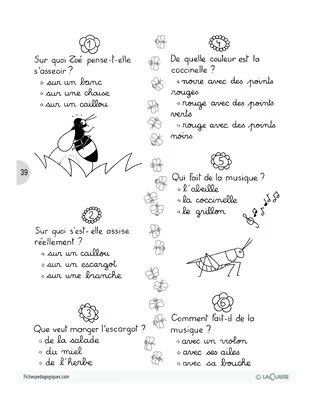 1
Sur quoi Zoé pense-t-elle
s'asseoir ?
sur un banc
sur une chaise
sur un caillou
39
2
Sur quoi s'est-elle assise
réellement ?
sur un caillou
sur un escargot
sur une branche
3
Que veut manger l'escargot ?
de la salade
du miel
de l'herbe
4
De quelle couleur est la
coccinelle ?
noire avec des points
rouges
rouge avec des points
verts
rouge avec des points
noirs
5
Qui fait de la musique ?
l'abeille
la coccinelle
le grillon
6
Comment fait-il de la
musique ?
avec un violon
avec ses ailes
avec sa bouche
Fichespedagogiques.com
© LACLASSE